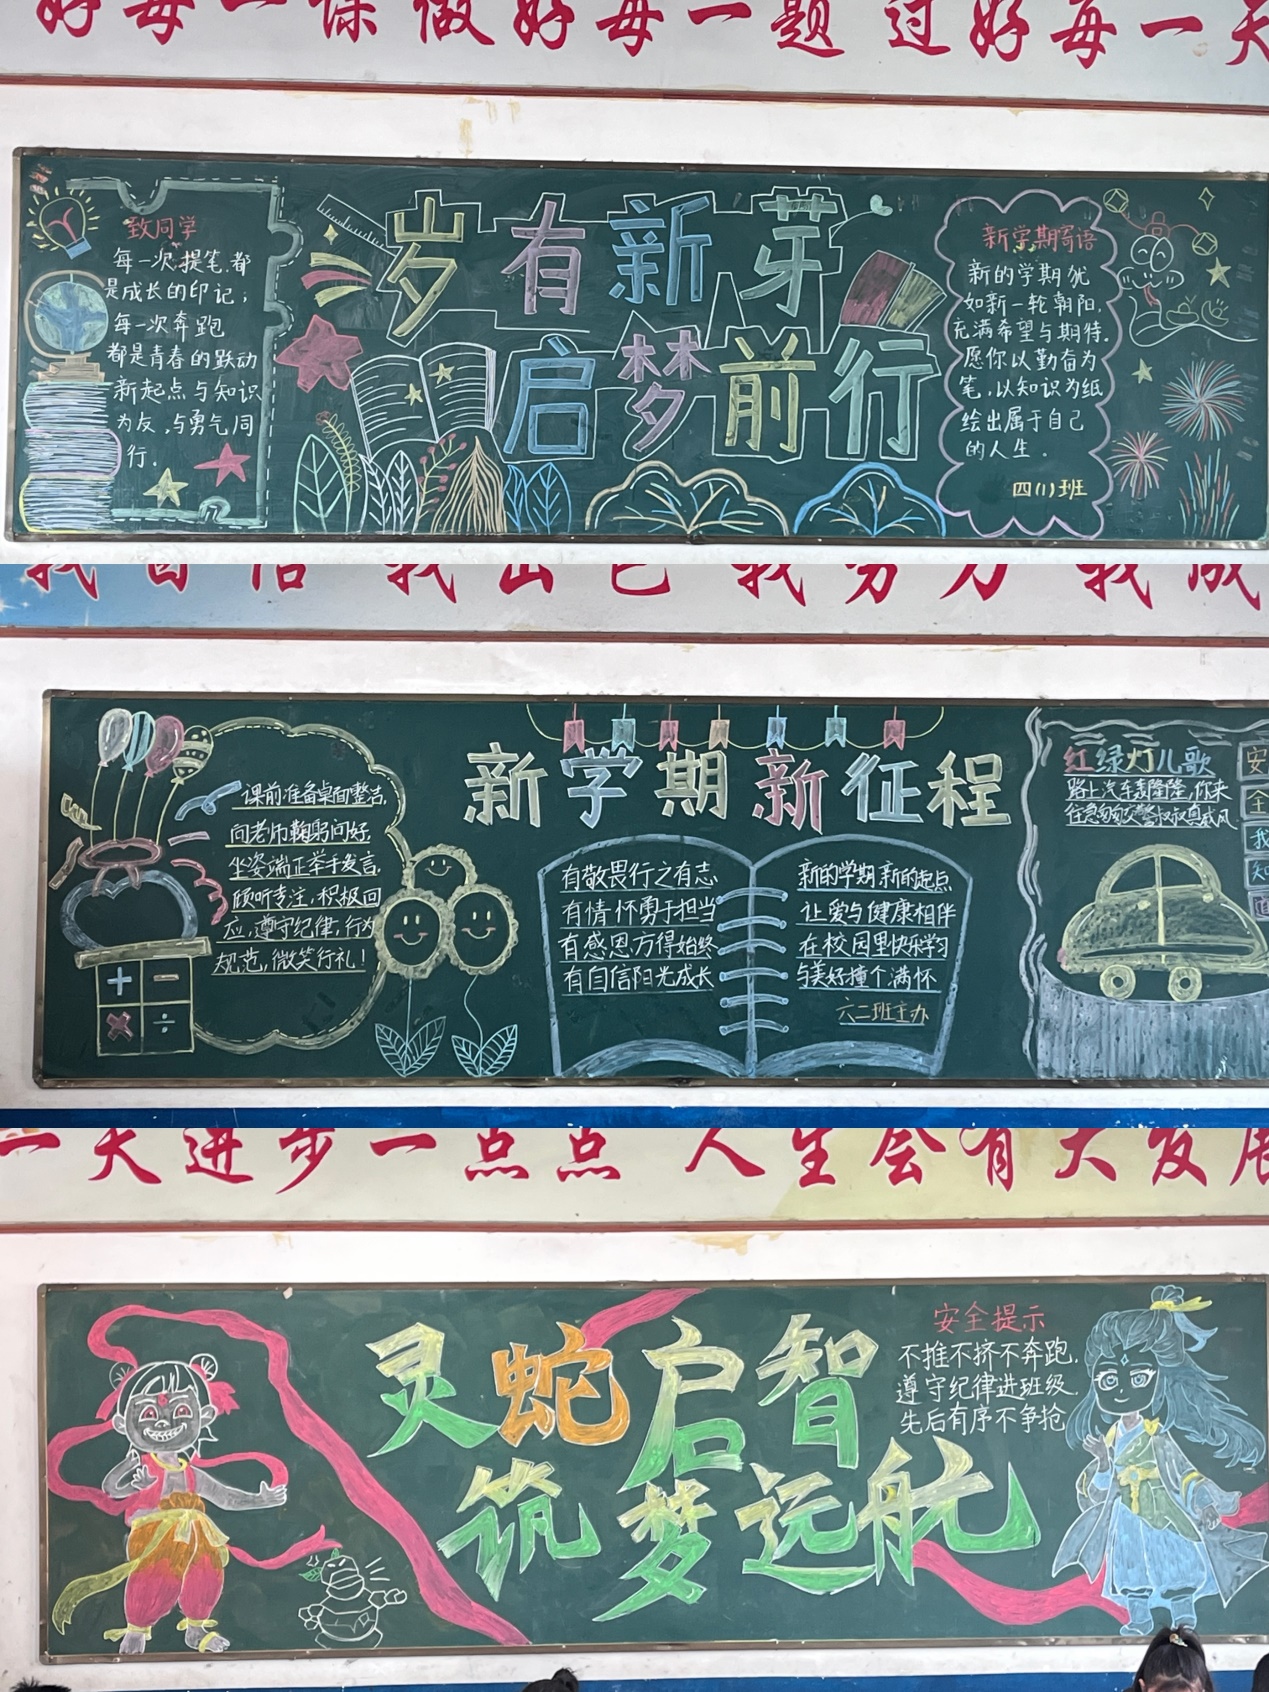 好每一课 做好每一题 过好每一天
岁有新芽
启梦前行
致同学
每一次提笔,都
是成长的印记;
每一次奔跑
都是青春的跃动
新起点与知识
为友,与勇气同
行.
新学期寄语
新的学期犹
如新一轮朝阳,
充满希望与期待.
愿你以勤奋为
笔,以知识为纸
绘出属于自己
的人生.
四(1)班
我自信 我出色 我努力 我成
新学期新征程
课前准备桌面整洁,
向老师鞠躬问好
坐姿端正举手发言,
倾听专注,积极回
应,遵守纪律,行为
规范,微笑行礼!
+ −
× ÷
有敬畏行之有志
有情怀勇于担当
有感恩方得始终
有自信阳光成长
新的学期新的起点
让爱与健康相伴
在校园里快乐学习
与美好撞个满怀
六二班主办
红绿灯儿歌
路上汽车轰隆隆,你来
往忽匆交警叔叔真威风
安
全
我
知
道
一天进步一点点 人生会有大发展
灵蛇启智
筑梦远航
安全提示
不推不挤不奔跑,
遵守纪律进班级,
先后有序不争抢